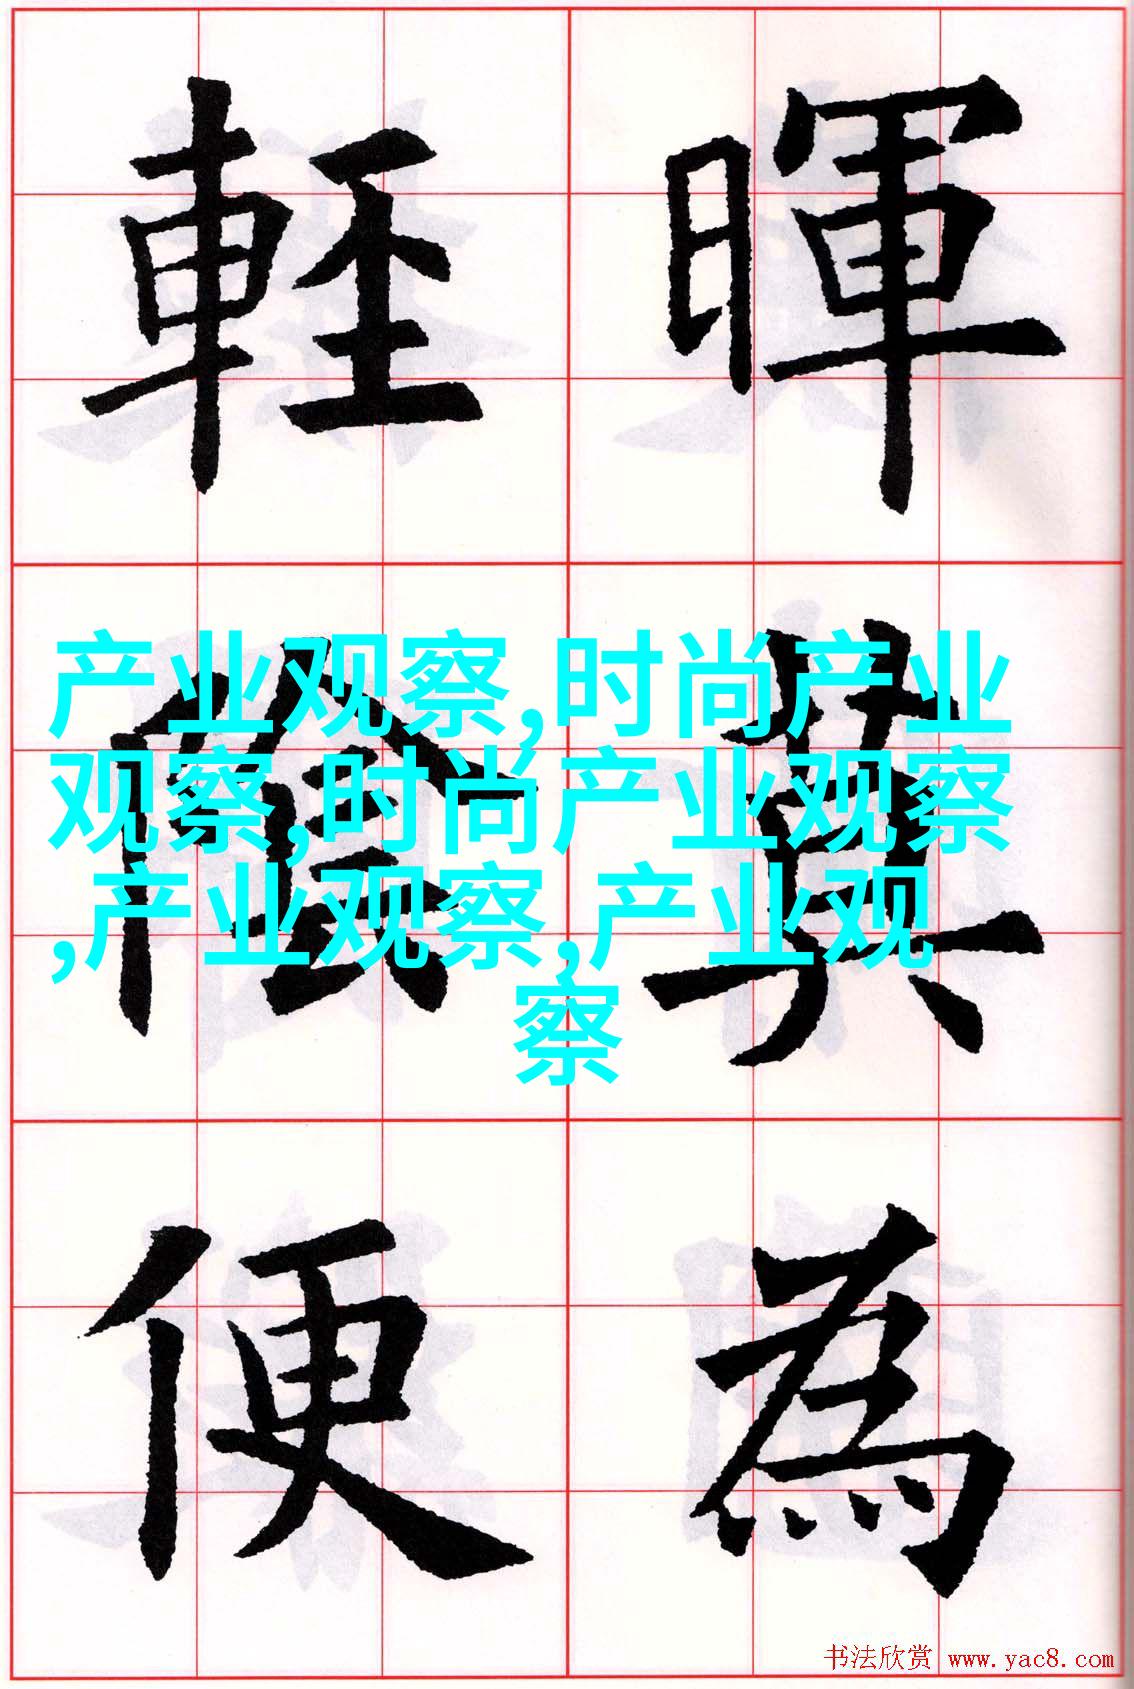 暉莫為
輕陰便
产业观察,时尚产业
观察,时尚产业观察
,产业观察,产业观
察
书法欣赏 www.yac8.com